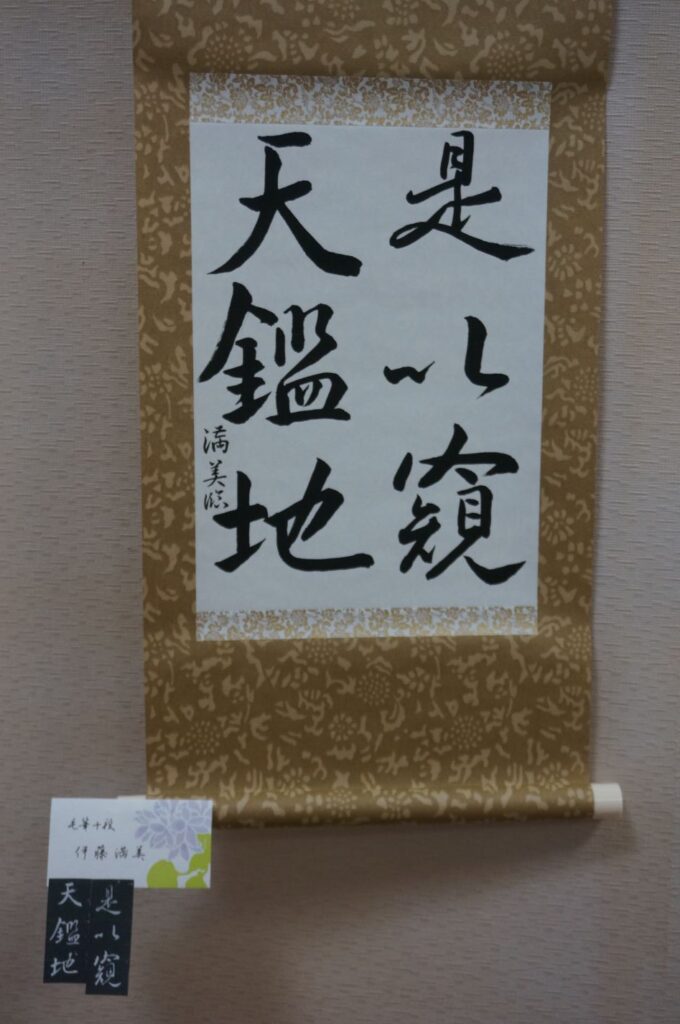 是以窺
天鑑地
満美臨
毛筆十段
伊藤満美
是以窺
天鑑地